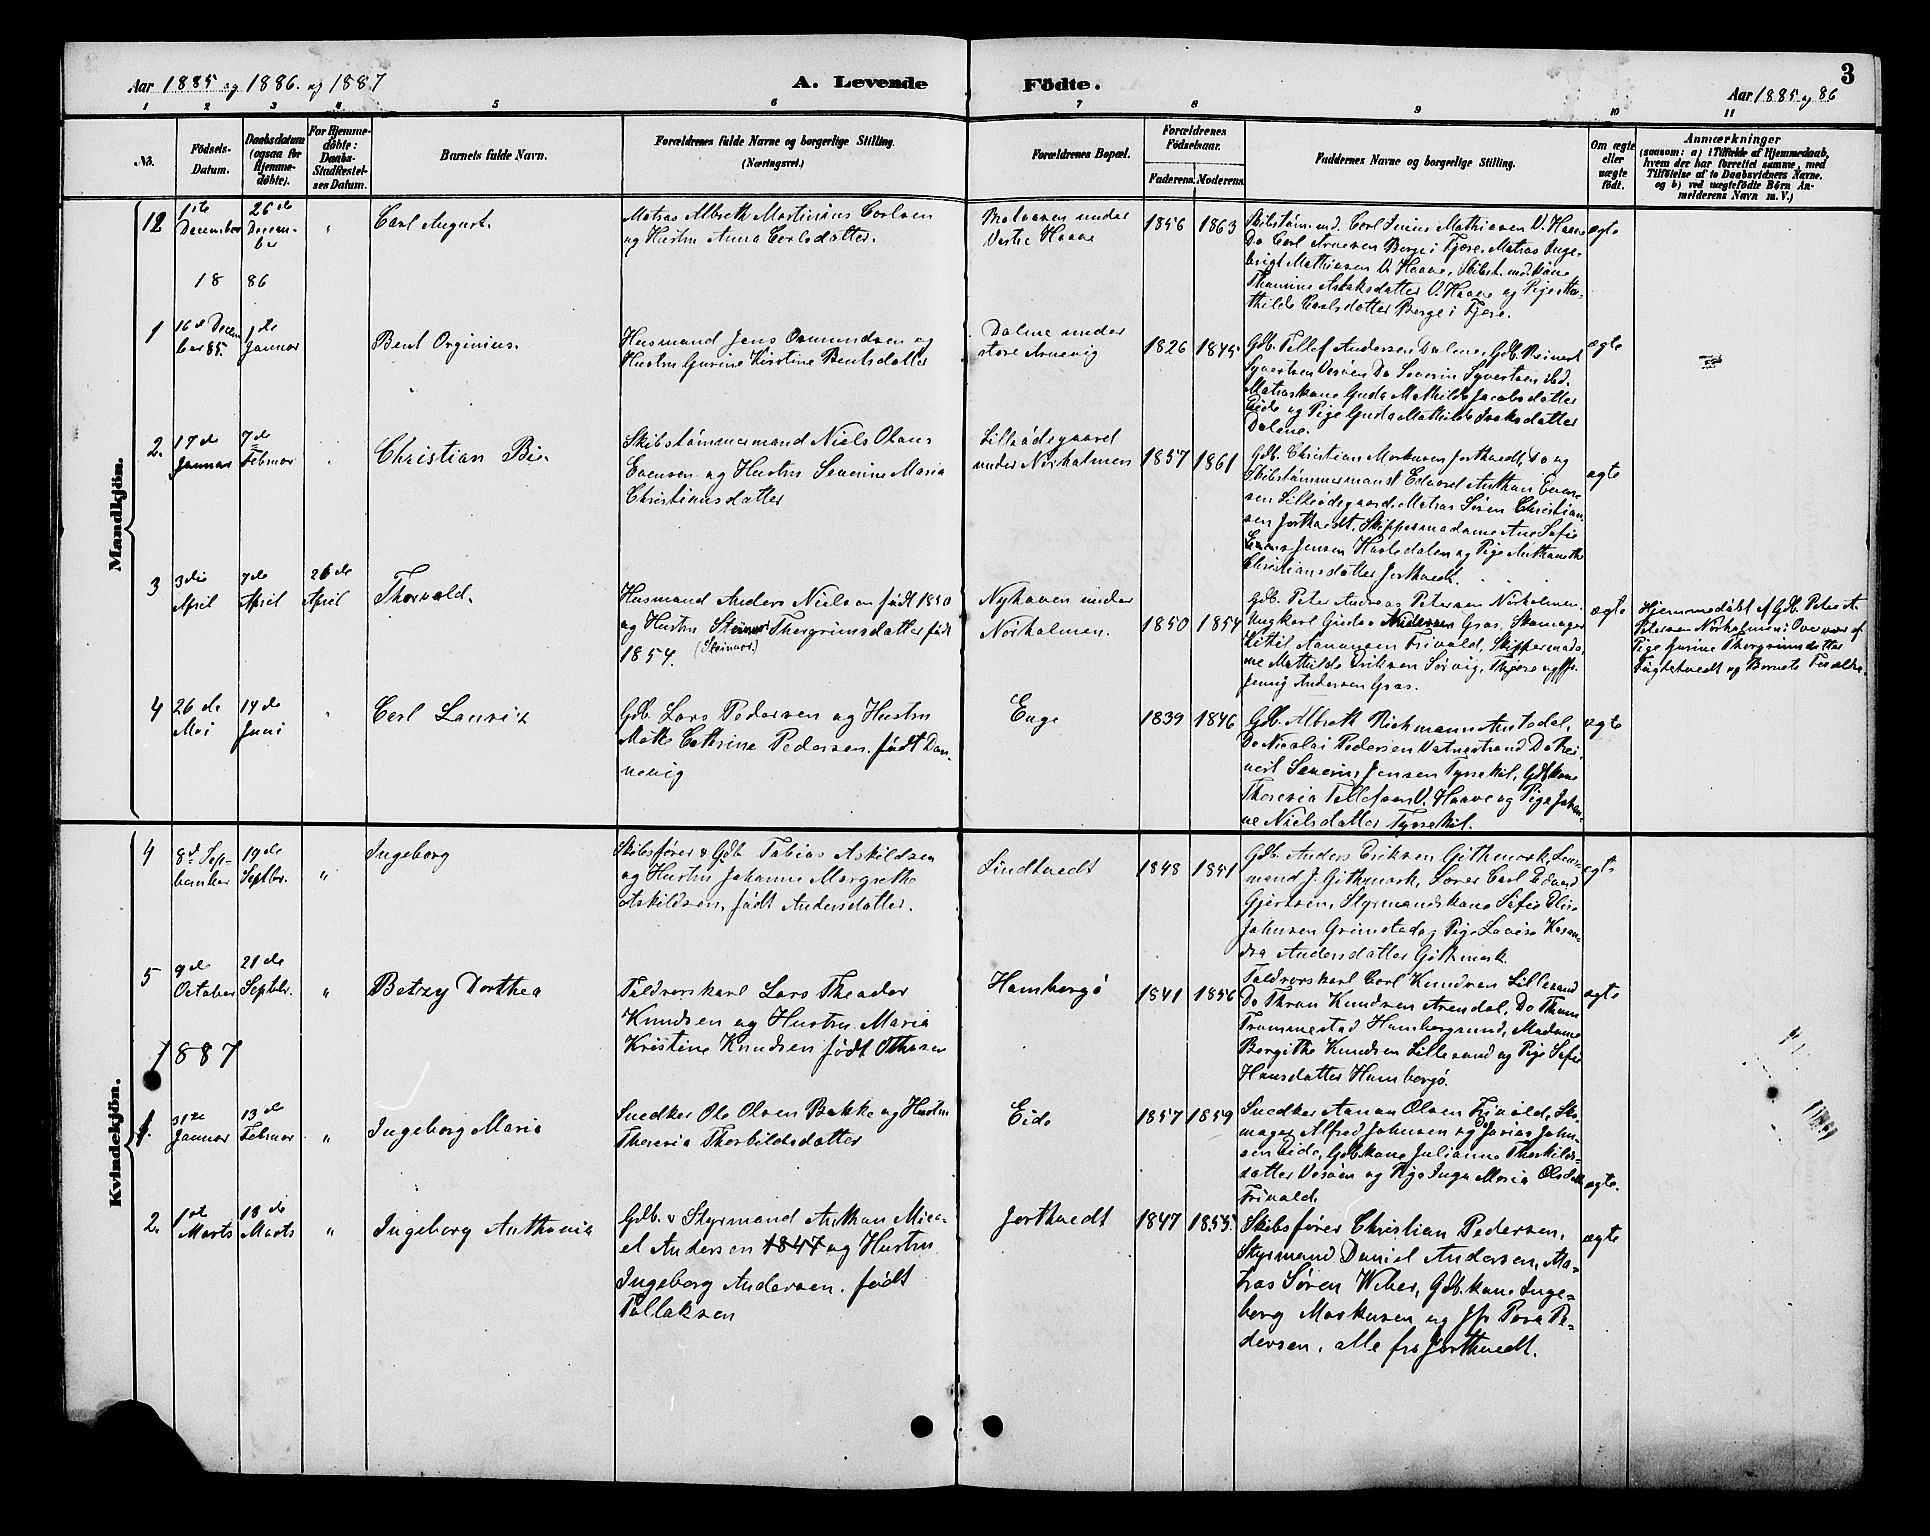 Aar 1885 og 1886. og 1887
A. Levende
Födte.
3
Aar 1885 og 86
1 2 3 4 5 6 7 8 9 10 11
No.
Födsels-
Datum.
Daabsdatum
(ogsaa for
Hjemme-
döbte).
For Hjemme-
döbte:
Daabs-
Stadfæstel-
ses Datum.
Barnets fulde Navn.
Forældrenes fulde Navne og borgerlige Stilling.
(Næringsvei.)
Forældrenes Bopæl.
Forældrenes
Födselsaar.
Faderens. Moderens.
Faddernes Navne og borgerlige Stilling.
Om ægte
eller
uægte
födt.
Anmærkninger
(saasom: a) i Tilfælde af Hjemmedaab,
hvem der har forrettet samme, med
Tilföielse af to Daabsvidners Navne.
og b) ved uægtefödte Börn An-
melderens Navn m. V.)
Mandkjön.
12
1ste
December
26de
Decem-
ber
"
Carl August.
Matros Albreth Martinius Carlsen
og Hustru Anna Carlsdatter.
under
Vestre Haave
1856
1863
Skibstømmd. Carl Junius Mathiasen V. Haave
Do Carl Arnesen Berge i Fjære, Matros Inge-
brigt Mathiasen V. Haave, Skibst. mdskone
Thomine Aslaksdatter V. Haave og Pige Ma-
thilde Carlsdatter Berge i Fjære.
ægte
18 86
1
16de Decem
ber 85.
1ste
Januar
Bent Orginius.
Husmand Jens Osmundsen og
Hustru Gurine Kirstine Bentsdatter
Dalene under
store Arnevig
1826
1845
Gdb. Tellef Andersen Dalene, Gdb. Reinert
Syvertsen Vesøen Do Severin Syvertsen ibd.
Matroskone Guda Mathilde Jacobsdatter
Eide og Pige Guda Mathilde Isaksdatter
Dalene.
ægte
2.
17de
Januar
7de
Februar
Christian Bie
Skibstømmermand Niels Olaus
Evensen og Hustru Severine Maria
Christiansdatter
Lilleødegaard
under Nørholmen
1857
1861
Gdb. Christian Markusen Jorthvedt, do og
Skibstømmermand Edvard Anthon Even-
sen Lilleødegaard, Matros Søren Christian
sen Jorthvedt, Skippermadame Ane Sofie
Jensen Hasledalen og Pige Anthonette
Christiansdatter Jorthvedt.
ægte
3
3die
April
7de
April
26de
April
Thorvald.
Husmand Anders Nielsen født 1850
og Hustru Steinvor Thorgrimsdatter født
1854. (Steinvor.)
Nyhaven under
Nørholmen.
1850
1854
Gdb. Peter Andreas Petersen Nørholmen.
Ungkarl Gustav Andersen Gras, Skomager
Kittil Aanonsen Trivold, Skippermada-
me Mathilde Eriksen Sørvig, Fjære og Jfr.
Jenny Andersen Gras.
ægte
Hjemmedøbt af Gdb. Peter A.
Petersen Nørholmen i Overvær af
Pige Gurine Thorgrimsdatter
Fugletvedt og Barnets Forældre.
4
26de
Mai
14de
Juni
"
Carl Lauritz
Gdb. Lars Pedersen og Hustru
Mette Cathrine Pedersen, født Dan-
nevig
Enge
1839
1846
Gdb. Albreth Richmann Anstedal,
Do Nicolai Pedersen Vatnestrand Do Rei-
nert Severin Jensen Tyssekil, Gdbkone
Theresia Tellefsen V. Haave og Pige Johan-
ne Nielsdatter Tyssekil.
ægte
Kvindekjön.
4
8de Sep-
tember
19de
Septbr.
"
Ingeborg
Skibsfører & Gdb. Tobias Askildsen
og Hustru Johanne Margrethe
Askildsen, født Andersdatter.
Lindtvedt
1848
1841
Gdb. Anders Eriksen Githmark, Lens-
mand J. Githmark, Saver Carl Edvard
Gjertsen, Styrmandskone Sofie Elise
Johnsen Grimstad og Pige Lovise Kasan-
dra Andersdatter Githmark.
ægte
5
9de
October
21de
Septbr.
"
Betzy Dorthea
Toldrorskarl Lars Theodor
Knudsen og Hustru Maria
Kristine Knudsen født Othesen
Homborgø
1841
1856
Toldrorskarl Carl Knudsen Lillesand
Do Thron Knudsen Arendal, Do Thom
Trommestad Homborgsund, Madame
Bergithe Knudsen Lillesand og Pige Sofie
Hansdatter Homborgø.
ægte
1887
1.
31te
Januar
13de
Februar
"
Ingeborg Maria
Snedker Ole Olsen Bakke og Hustru
Theresia Thorkildsdatter
Eide
1857
1859
Snedker Aanon Olsen Trivold, Sko-
mager Alfred Johnsen og Do Josias John-
sen Eide, Gdb.kone Julianne Therkilds-
datter Vesøen og Pige Inga Maria Olsdatter
Trivold.
ægte.
2.
1ste
Marts
13de
Marts
"
Ingeborg Anthonia
Gdb. & Styrmand Anthon Mica-
el Andersen 1847 og Hustru
Ingeborg Andersen, født
Tallaksen
Jorthvedt
1847
1855.
Skibsfører Christian Pedersen,
Styrmand Daniel Andersen, Ma-
tros Søren Weber, Gdb.kone Inge-
borg Markusen og Jfr. Pe-
dersen, alle fra Jorthvedt.
ægte